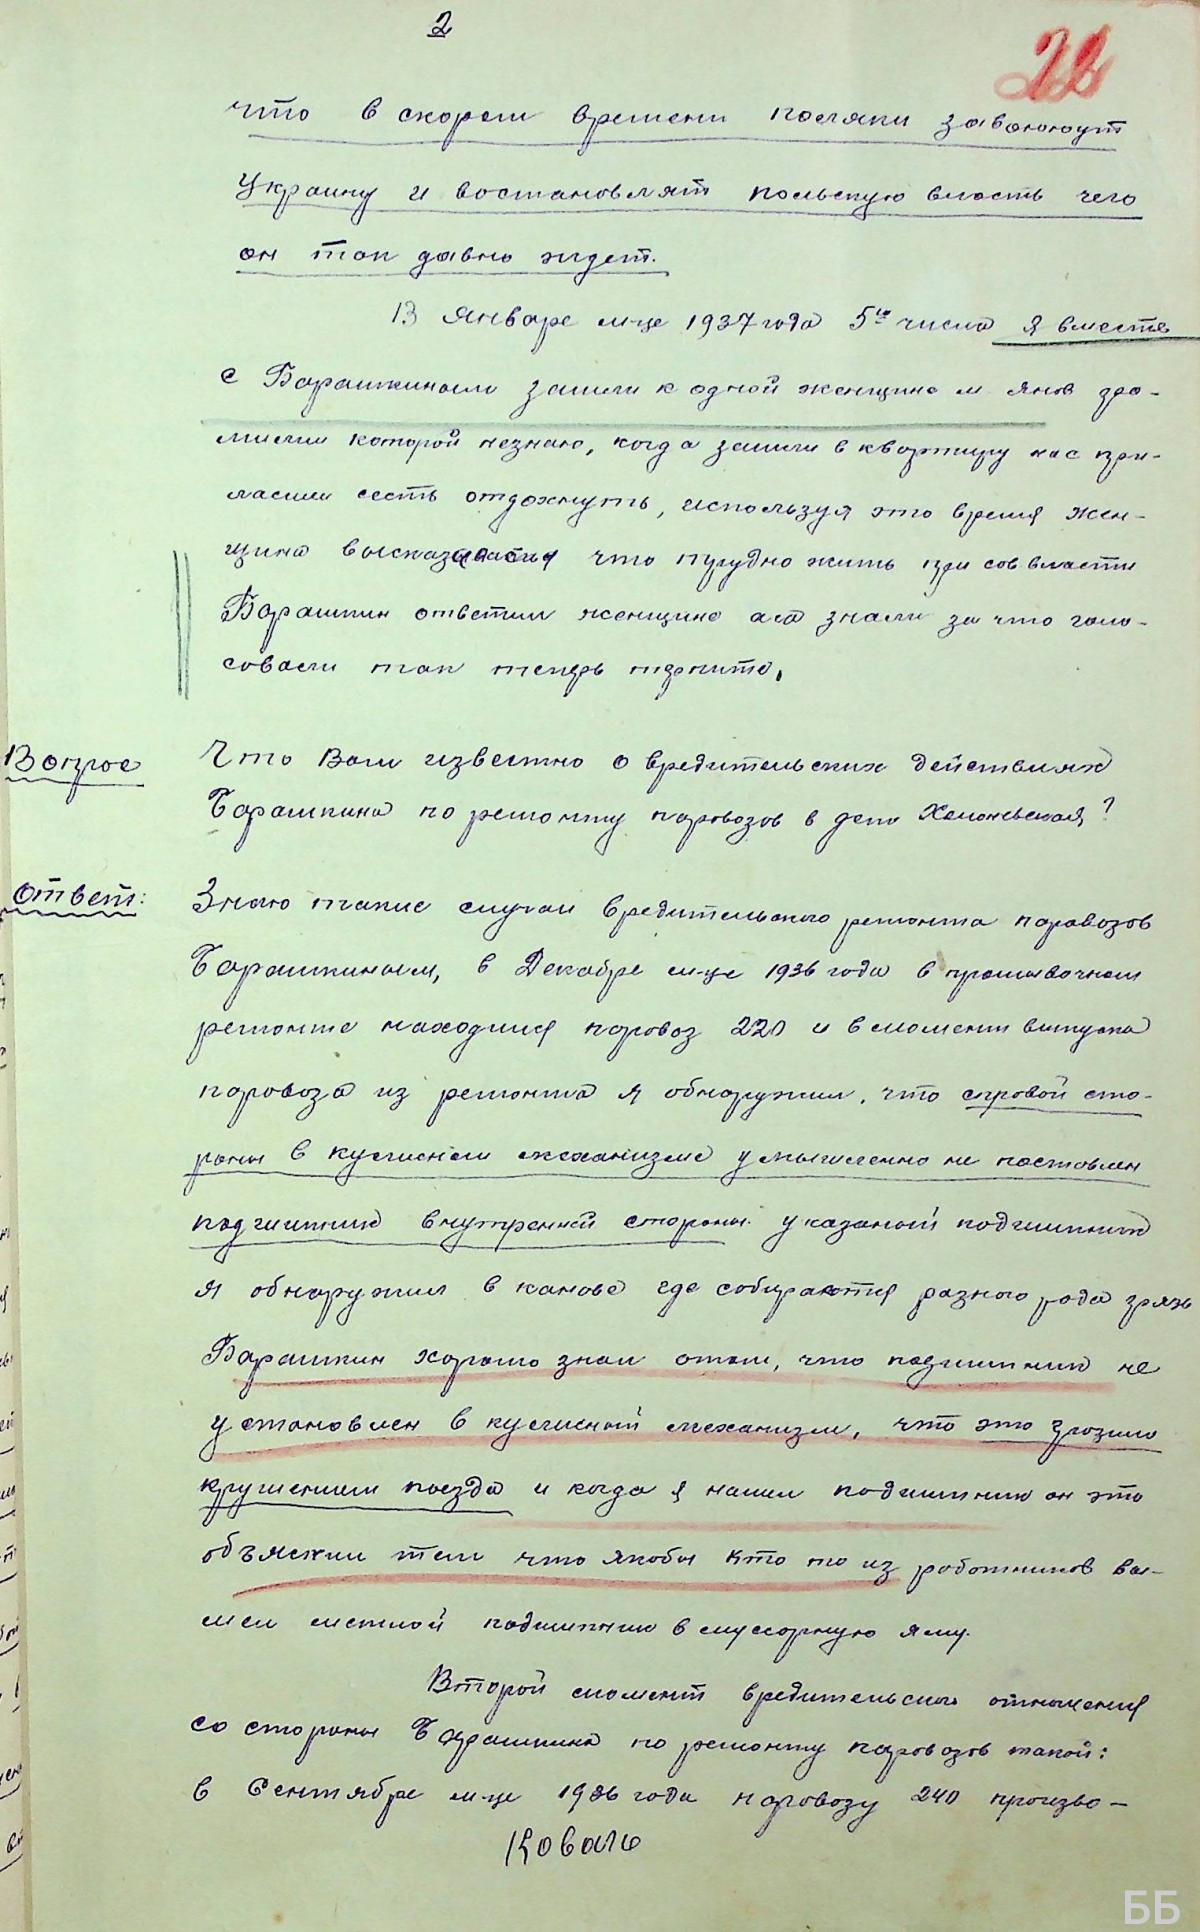 2
22
что в скором времени поляки завоюют
Украину и востановлят польскую власть чего
он так давно ждет.
В январе м-це 1937 года 5го числа я вместе
с Барашкиным зашли к одной женщине м. Янов
милии которой незнаю, когда зашли в квартиру нас при-
ласили сесть отдохнуть, используя это время жен-
щина что трудно жить при соввласти
Барашкин ответил женщине а знали за что голо-
совали так теперь терпите.
Вопрос Что Вам известно о вредительских действиях
Барашкина по ремонту паровозов в депо ?
Ответ: Знаю такие случаи вредительского ремонта паровозов
Барашкиным, в Декабре м-це 1936 года в промывочном
ремонте находился паровоз 220 и в момент выпуска
паровоза из ремонта я обнаружил, что справой сто-
роны в кулисном механизме умышленно не поставлен
подшипник внутренней стороны. указаный подшипник
я обнаружил в канаве где собираются разного рода грязь
Барашкин хорошо знал отом, что подшипник не
установлен в кулисный механизм, что это грозило
крушением поезда и когда я нашел подшипник он это
объяснил тем что якобы кто то из работников вы-
мел метлой подшипник в мусорную яму.
Второй момент вредительского отношения
со стороны Барашкина по ремонту паровозов такой:
в Сентябре м-це 1936 года паровозу 240 произво-
Коваль
ББ